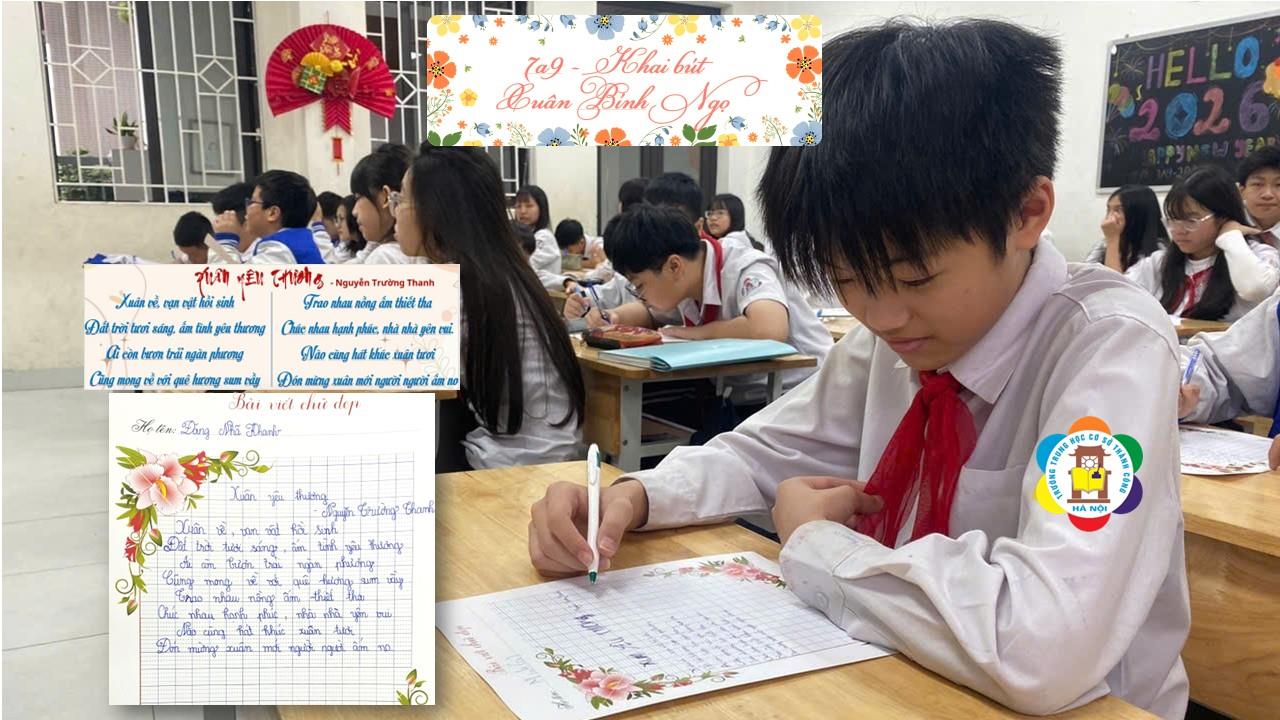 7a9 - Khai bút
Xuân Bính Ngọ
HELLO
2026
HAPPY NEW YEAR
xuân yêu thương - Nguyễn Trường Thanh
Xuân về, vạn vật hồi sinh
Đất trời tươi sáng, ấm tình yêu thương
Ai còn bươn trải ngàn phương
Cũng mong về với quê hương sum vầy
Trao nhau nồng ấm thiết tha
Chúc nhau hạnh phúc, nhà nhà yên vui.
Nào cùng hát khúc xuân tươi
Đón mừng xuân mới người người ấm no
Bài viết chữ đẹp
Họ tên: Đặng Nhã Khanh
Xuân yêu thương
- Nguyễn Trường Thanh
Xuân về, vạn vật hồi sinh
Đất trời tươi sáng, ấm tình yêu thương
Ai còn bươn trải ngàn phương
Cũng mong về với quê hương sum vầy
Trao nhau nồng ấm thiết tha
Chúc nhau hạnh phúc, nhà nhà yên vui
Nào cùng hát khúc xuân tươi
Đón mừng xuân mới người người ấm no.
TRƯỜNG TRUNG HỌC CƠ SỞ THÀNH CÔNG
HÀ NỘI